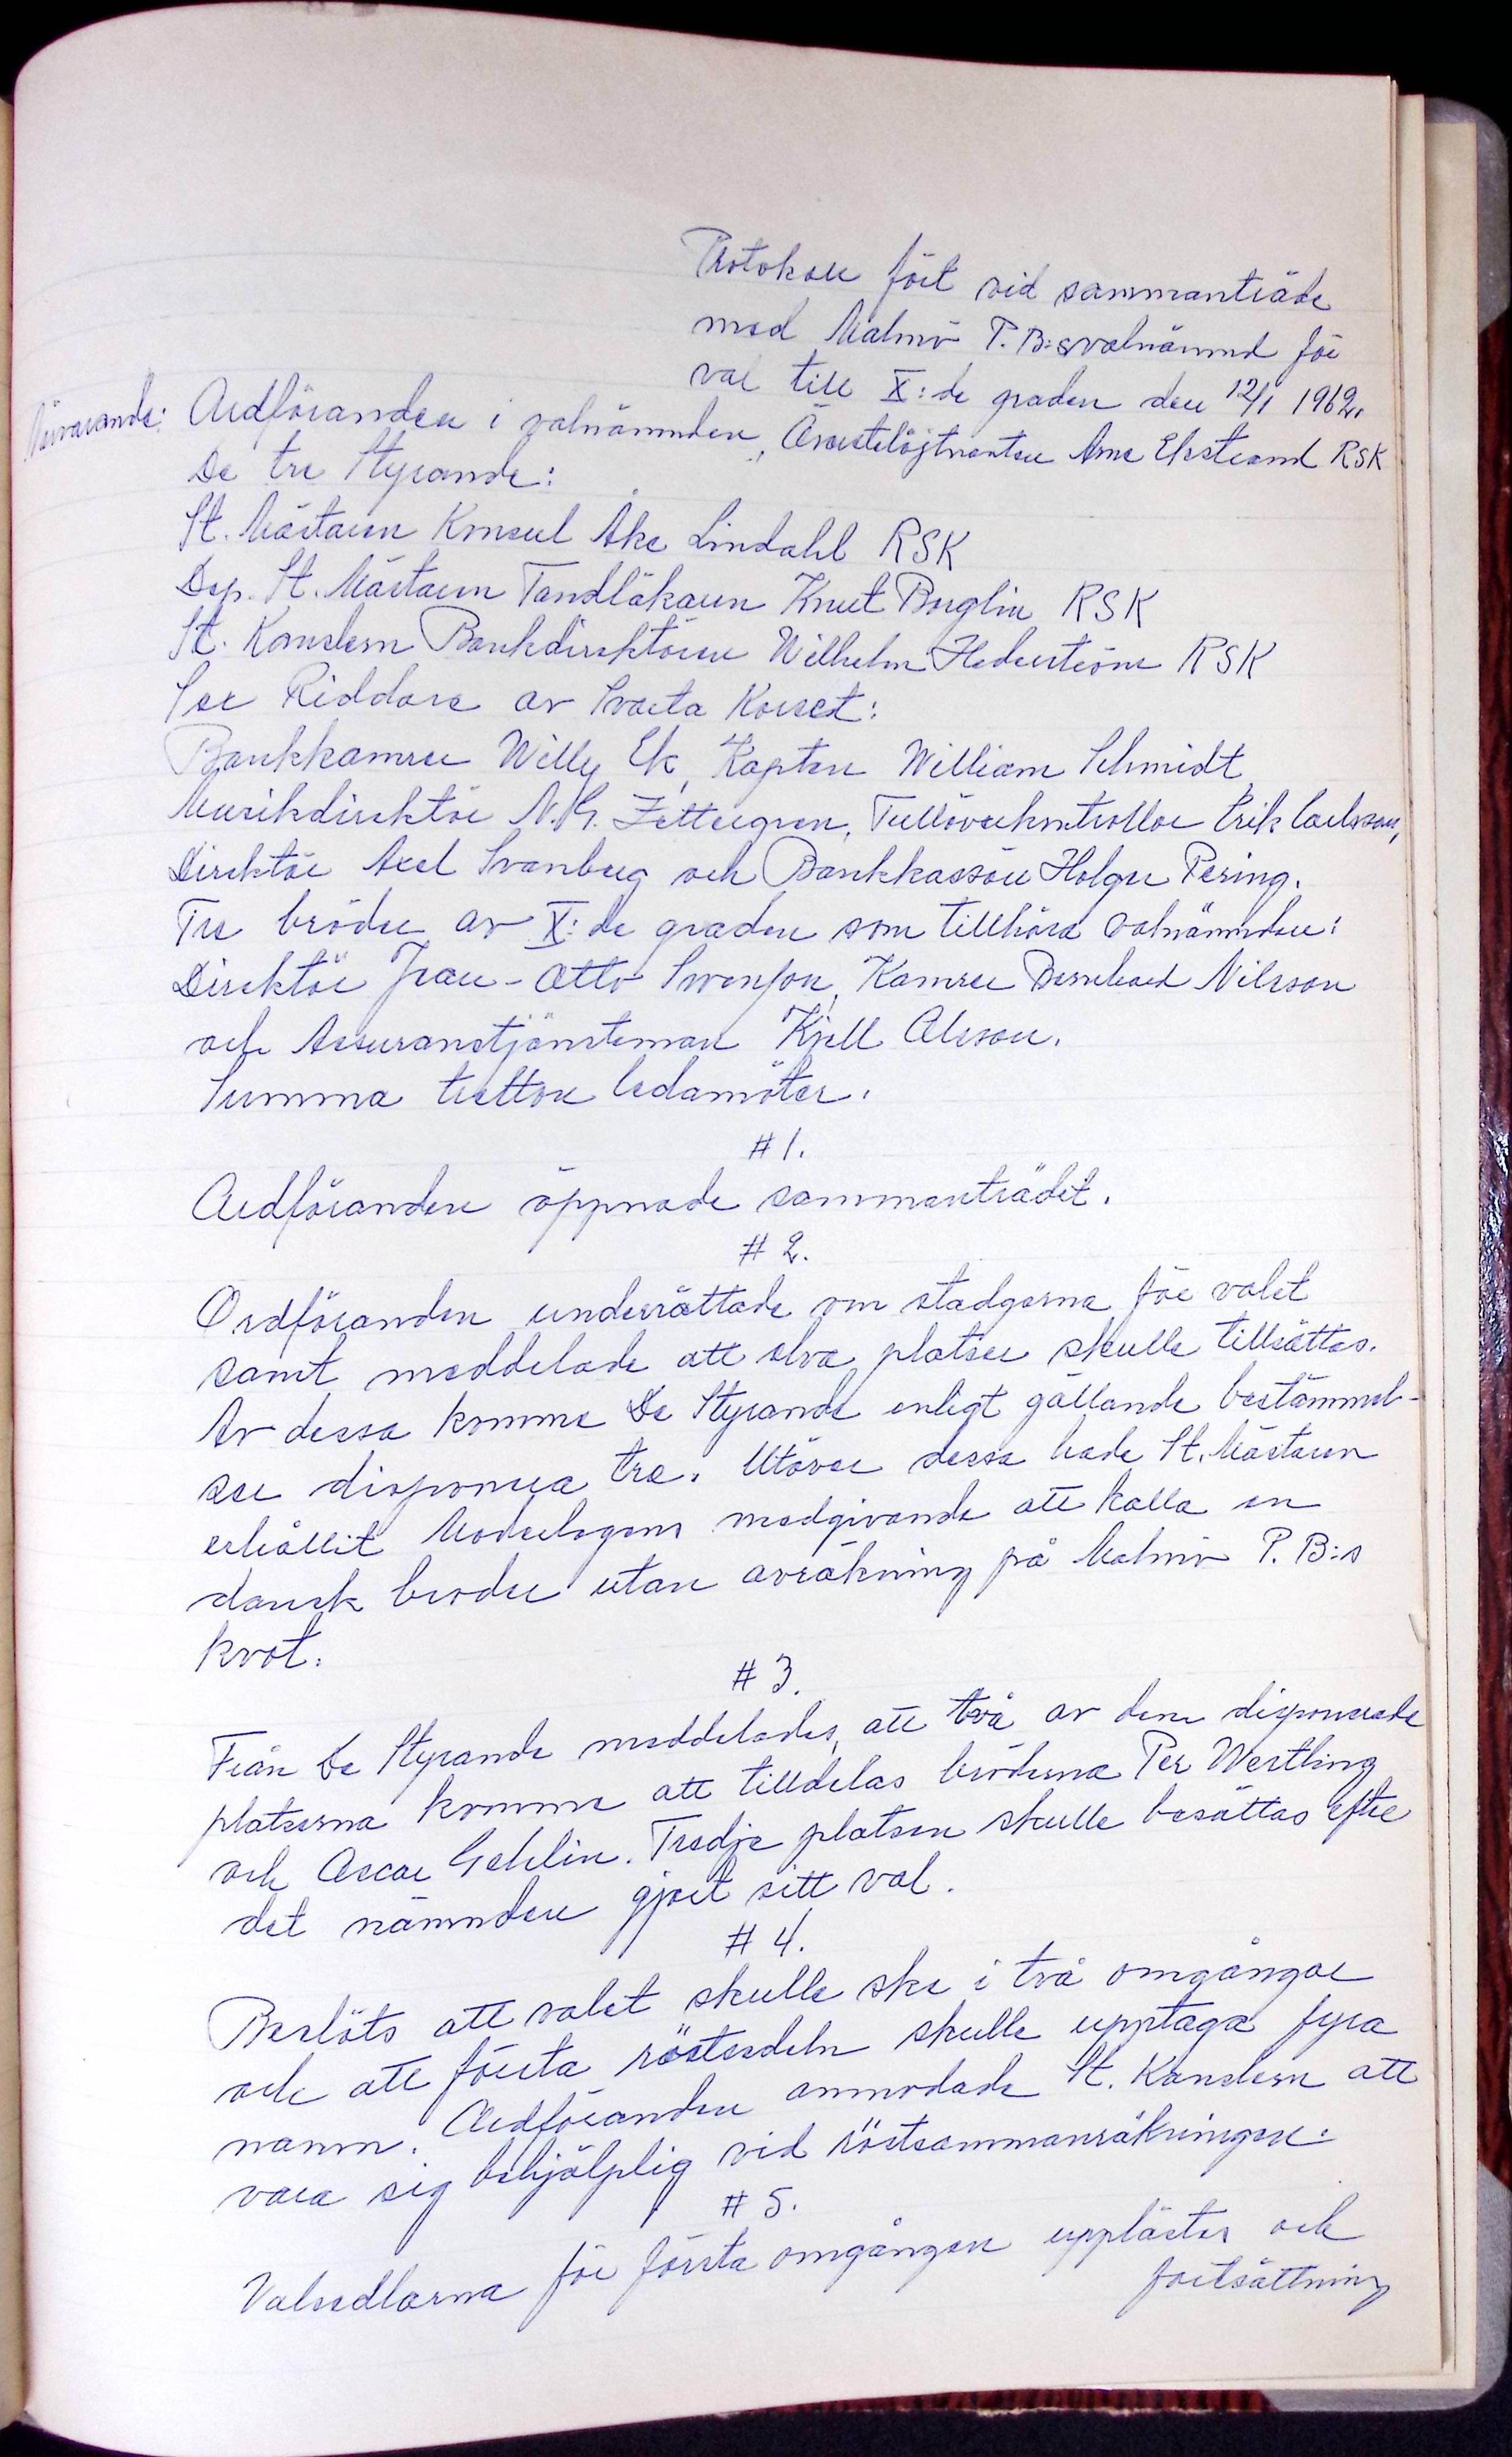 Protokoll fört vid sammanträde
med Malmö P.B:s valnämnd för
val till X:de graden den 12/1 1962.
Närvarande: Ordföranden i valnämnden, Överstelöjtnanten Arne Ekstrand RSK
De tre Styrande:
St. Mästaren Konsul Åke Lindahl RSK
Dep. St. Mästaren Tandläkaren Knut Borglin RSK
St. Kanslern Bankdirektören Wilhelm Hederström RSK
Sex Riddare av Svarta Korset:
Bankkamrer Willy Ek, Kapten William Schmidt,
Musikdirektör N.G. Zettergren, Tullöverkontrollör Erik Carlsson,
Direktör Axel Svanberg och Bankkassör Holger Pering.
Tre bröder av X:de graden som tillhöra valnämnden:
Direktör Jean-Otto Svenson, Kamrer Bernhard Nilsson
och Assuranstjänsteman Kjell Olsson.
Summa tretton ledamöter.
# 1.
Ordföranden öppnade sammanträdet.
# 2.
Ordföranden underrättade om stadgarna för valet
samt meddelade att elva platser skulle tillsättas.
Av dessa komme De Styrande enligt gällande bestämmel-
ser disponera tre. Utöver dessa hade St. Mästaren
erhållit Moderlogens medgivande att kalla en
dansk broder utan avräkning på Malmö P.B:s
kvot.
# 3.
Från De Styrande meddelades, att två av dem disponerade
platserna komme att tilldelas bröderna Per Westling
och Oscar Gehlin. Tredje platsen skulle besättas efter
det nämnden gjort sitt val.
# 4.
Beslöts att valet skulle ske i två omgångar
och att första röstsedeln skulle upptaga fyra
namn. Ordföranden anmodade St. Kanslern att
vara sig behjälplig vid röstsammanräkningen.
# 5.
Valsedlarna för första omgången upplästes och
fortsättning